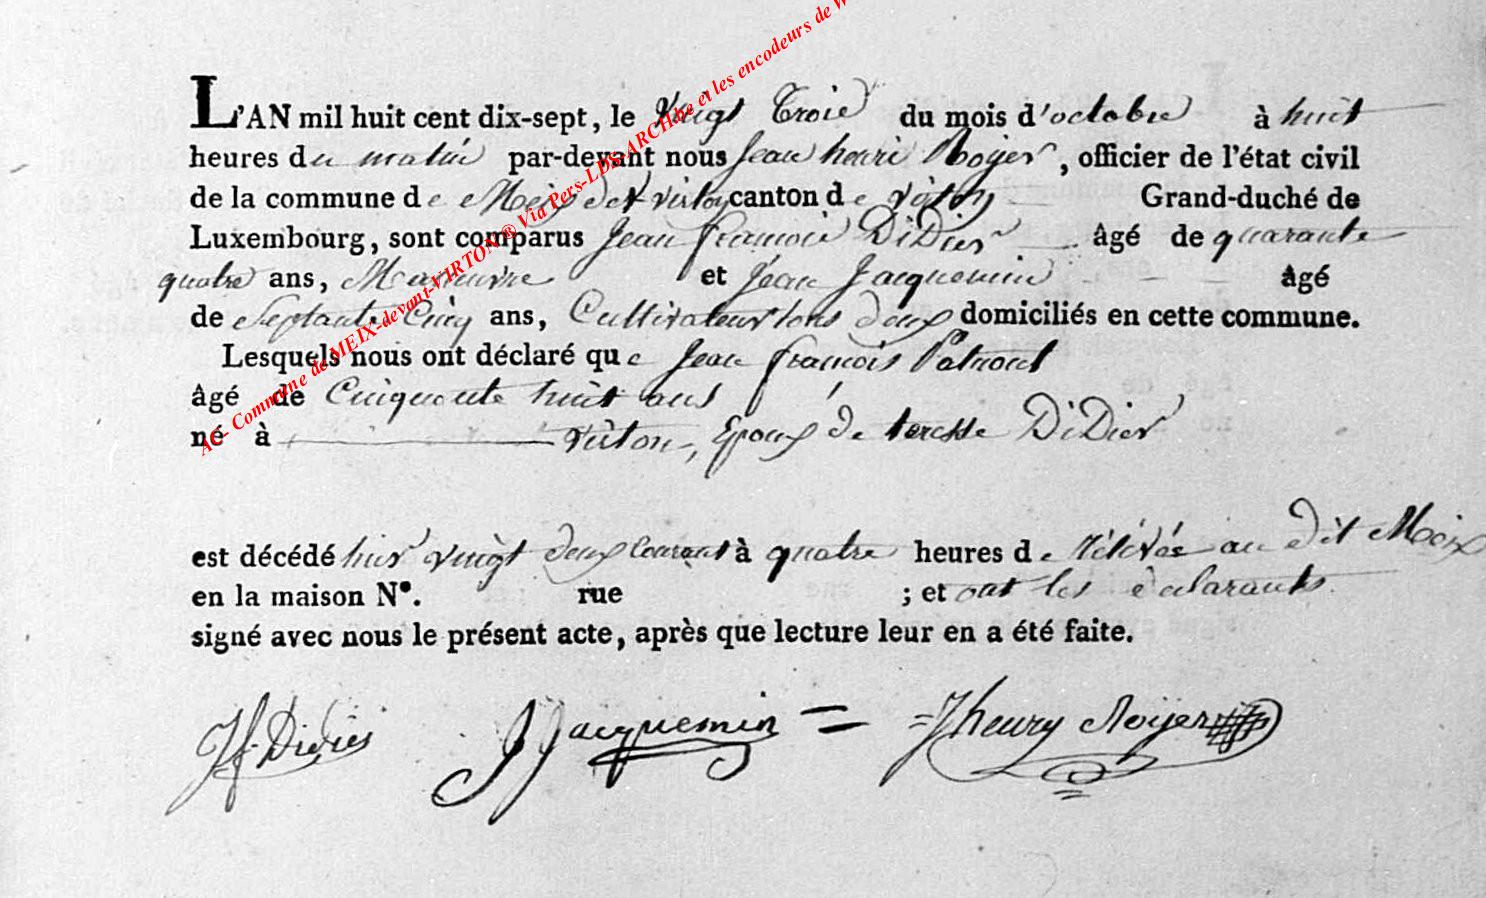 L'AN mil huit cent dix-sept, le vingt Trois du mois d'octobre à huit
heures du matin par-devant nous Jean henri Roÿer, officier de l'état civil
de la commune de Meix devt virton canton de virton Grand-duché de
Luxembourg, sont comparus Jean francois DiDier âgé de quarante
quatre ans, Manœuvre et Jean Jacquemin âgé
de Septante Cinq ans, Cultivateurs tous deux domiciliés en cette commune.
Lesquels nous ont déclaré que Jean francois
âgé de Cinquante huit ans
né à virton, Epoux de teresse DiDier
est décédé hier vingt deux Courant à quatre heures de relévée au dit Meix
en la maison N°. rue ; et ont les déclarants
signé avec nous le présent acte, après que lecture leur en a été faite.
Jf. Didier J Jacquemin = = Jhenry Roÿer
AC- Commune de MEIX-devant-VIRTON ® Via Pers-LDS-ARCHbe et les encodeurs de